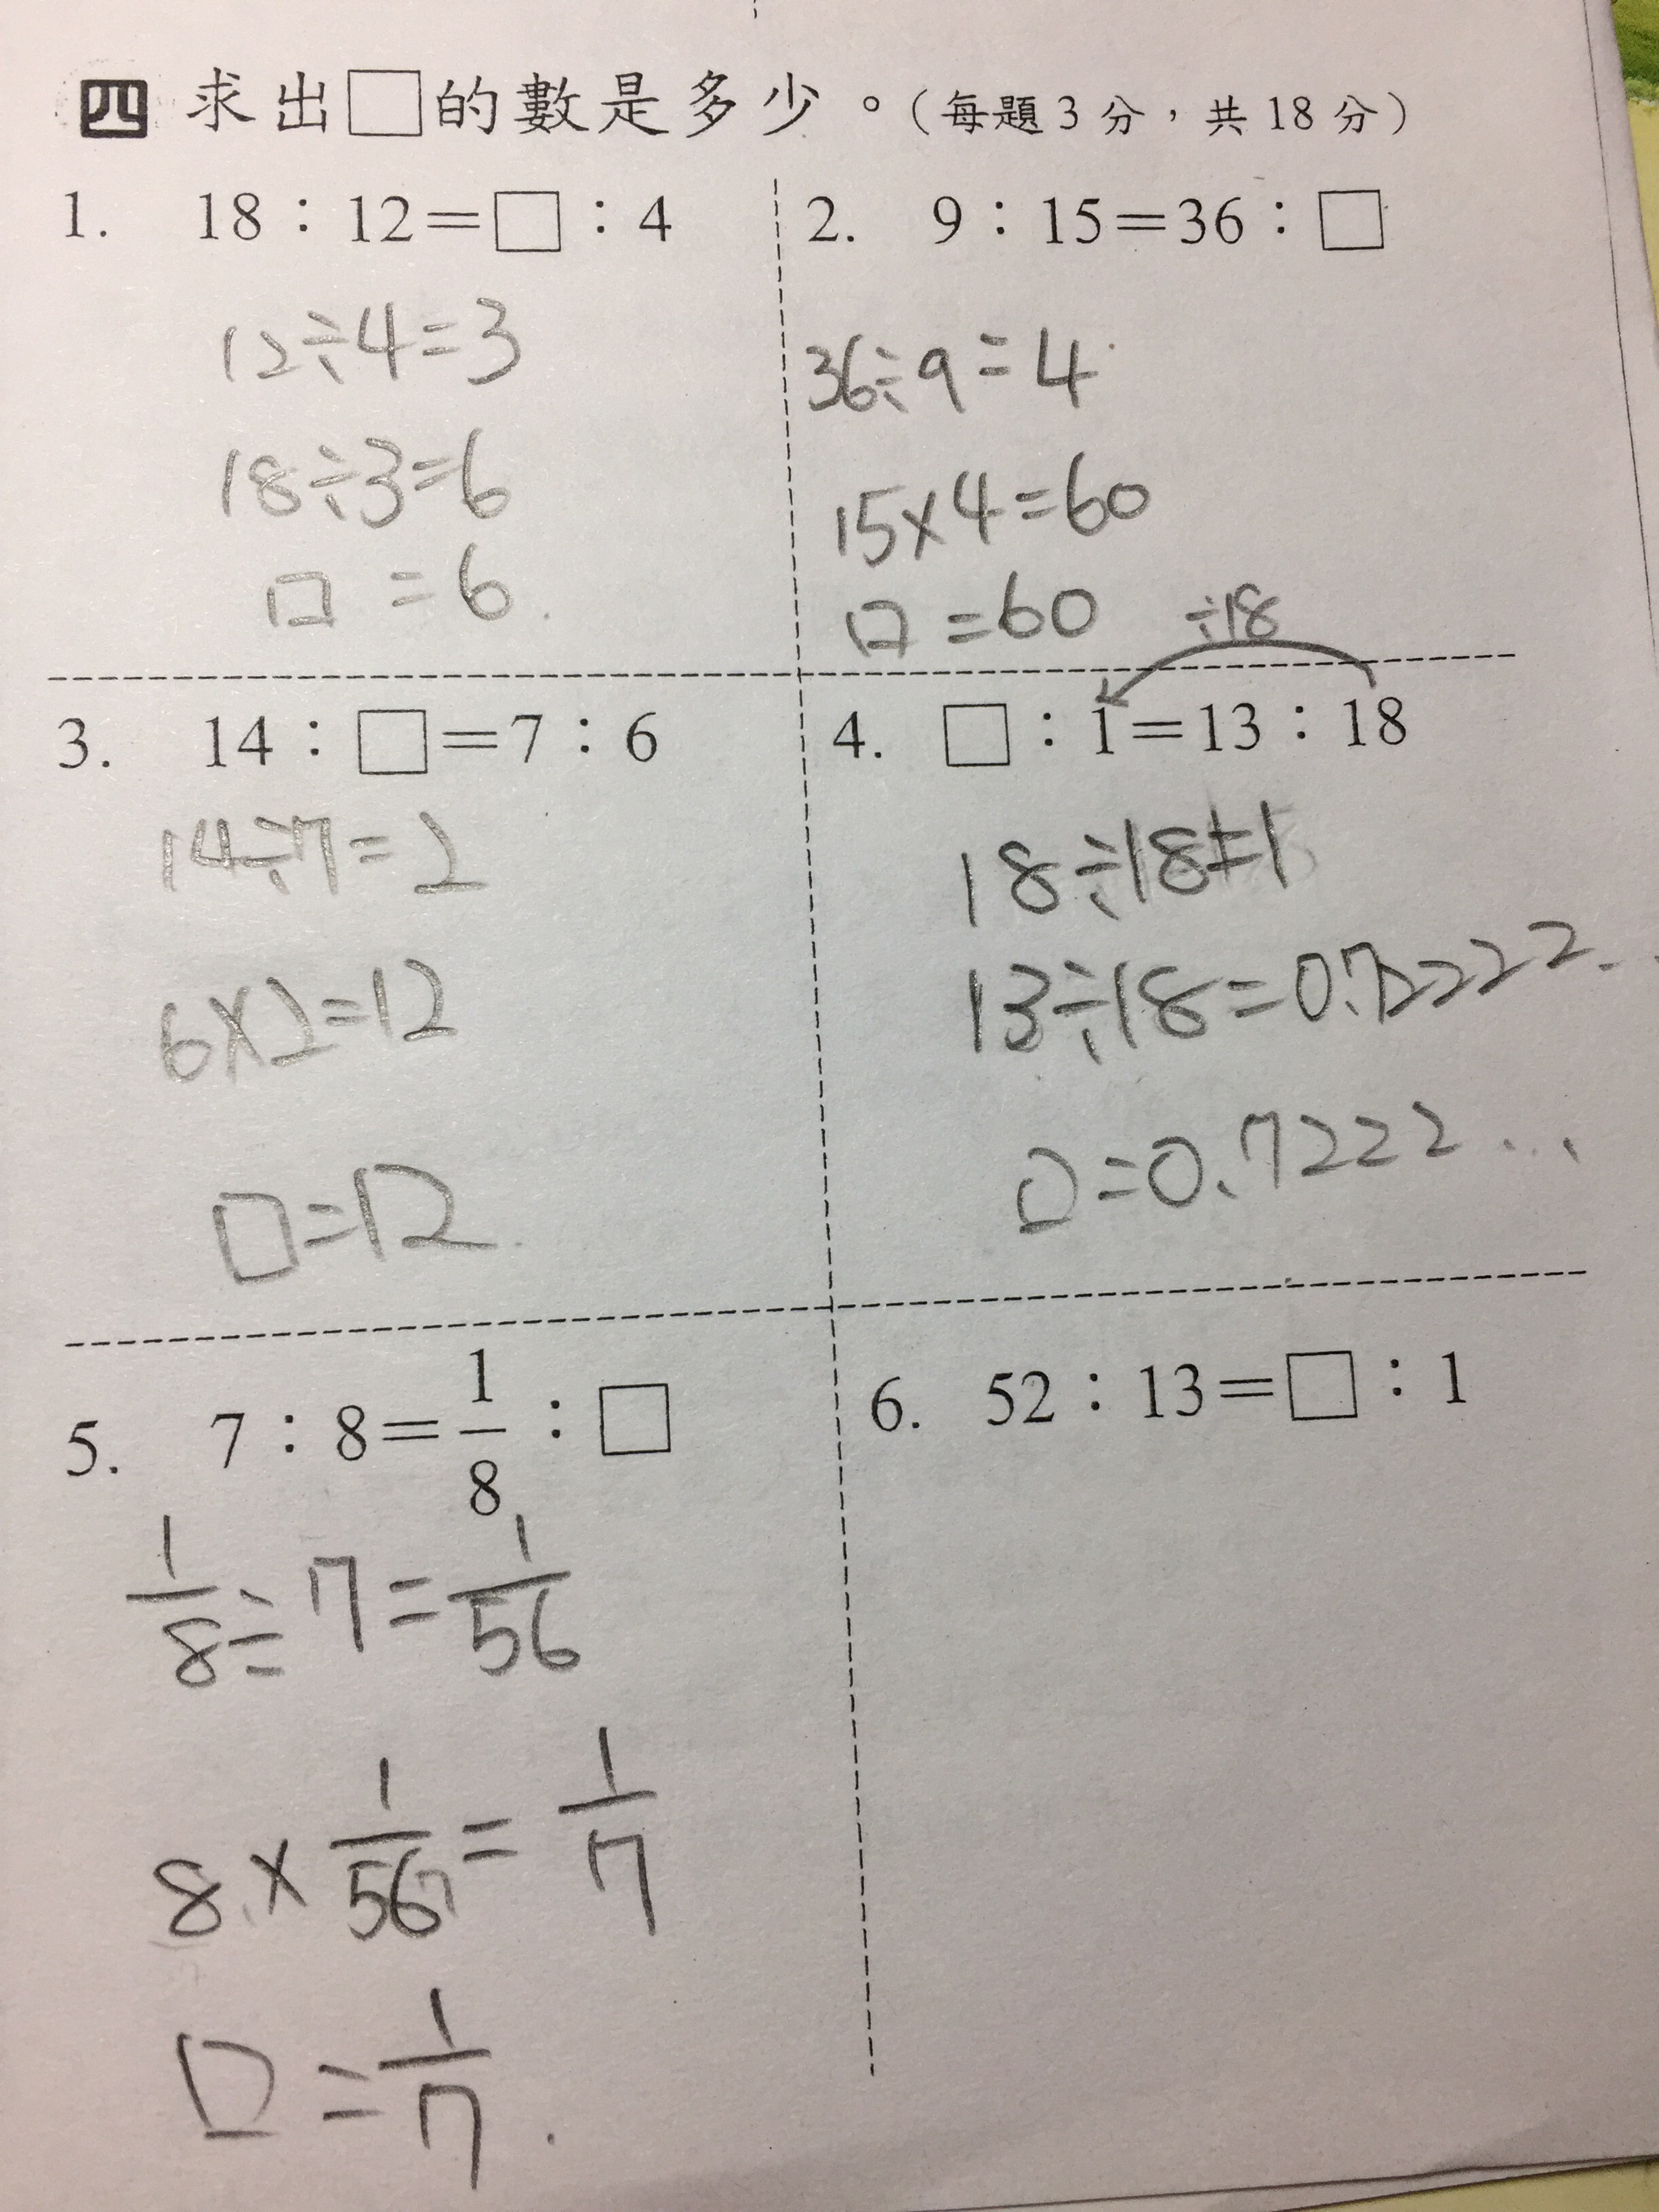 四 求出□的數是多少。(每題3分，共18分)
1. 18：12=□：4
12÷4=3
18÷3=6
□=6
2. 9：15=36：□
36÷9=4
15×4=60
□=60
3. 14：□=7：6
14÷7=2
6×2=12
□=12
÷18
4. □：1=13：18
18÷18=1
13÷18=0.72222...
□=0.7222...
5. 7：8=1/8：□
1/8÷7=1/56
8×1/56=1/7
□=1/7
6. 52：13=□：1